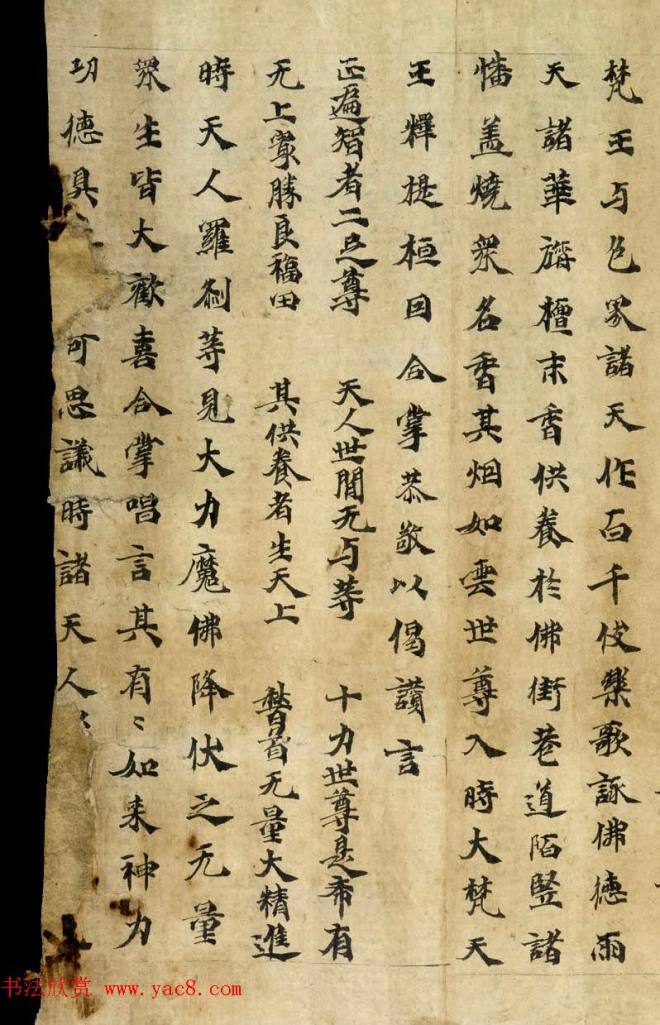 梵王与色界諸天作百千伎樂歌詠佛德雨
天諸華旃檀末香供養於佛街巷道陌竪諸
幡盖燒衆名香其烟如雲世尊入時大梵天
王釋提桓因合掌恭敬以偈讃言
正遍智者二足尊 天人世間无与等 十力世尊是希有
无上最勝良福田 其供養者生天上 稽首无量大精進
時天人羅刹等見大力魔佛降伏之无量
衆生皆大歡喜合掌唱言其有〻如来神力
功德具 可思議時諸天人
书法欣赏 www.yac8.com